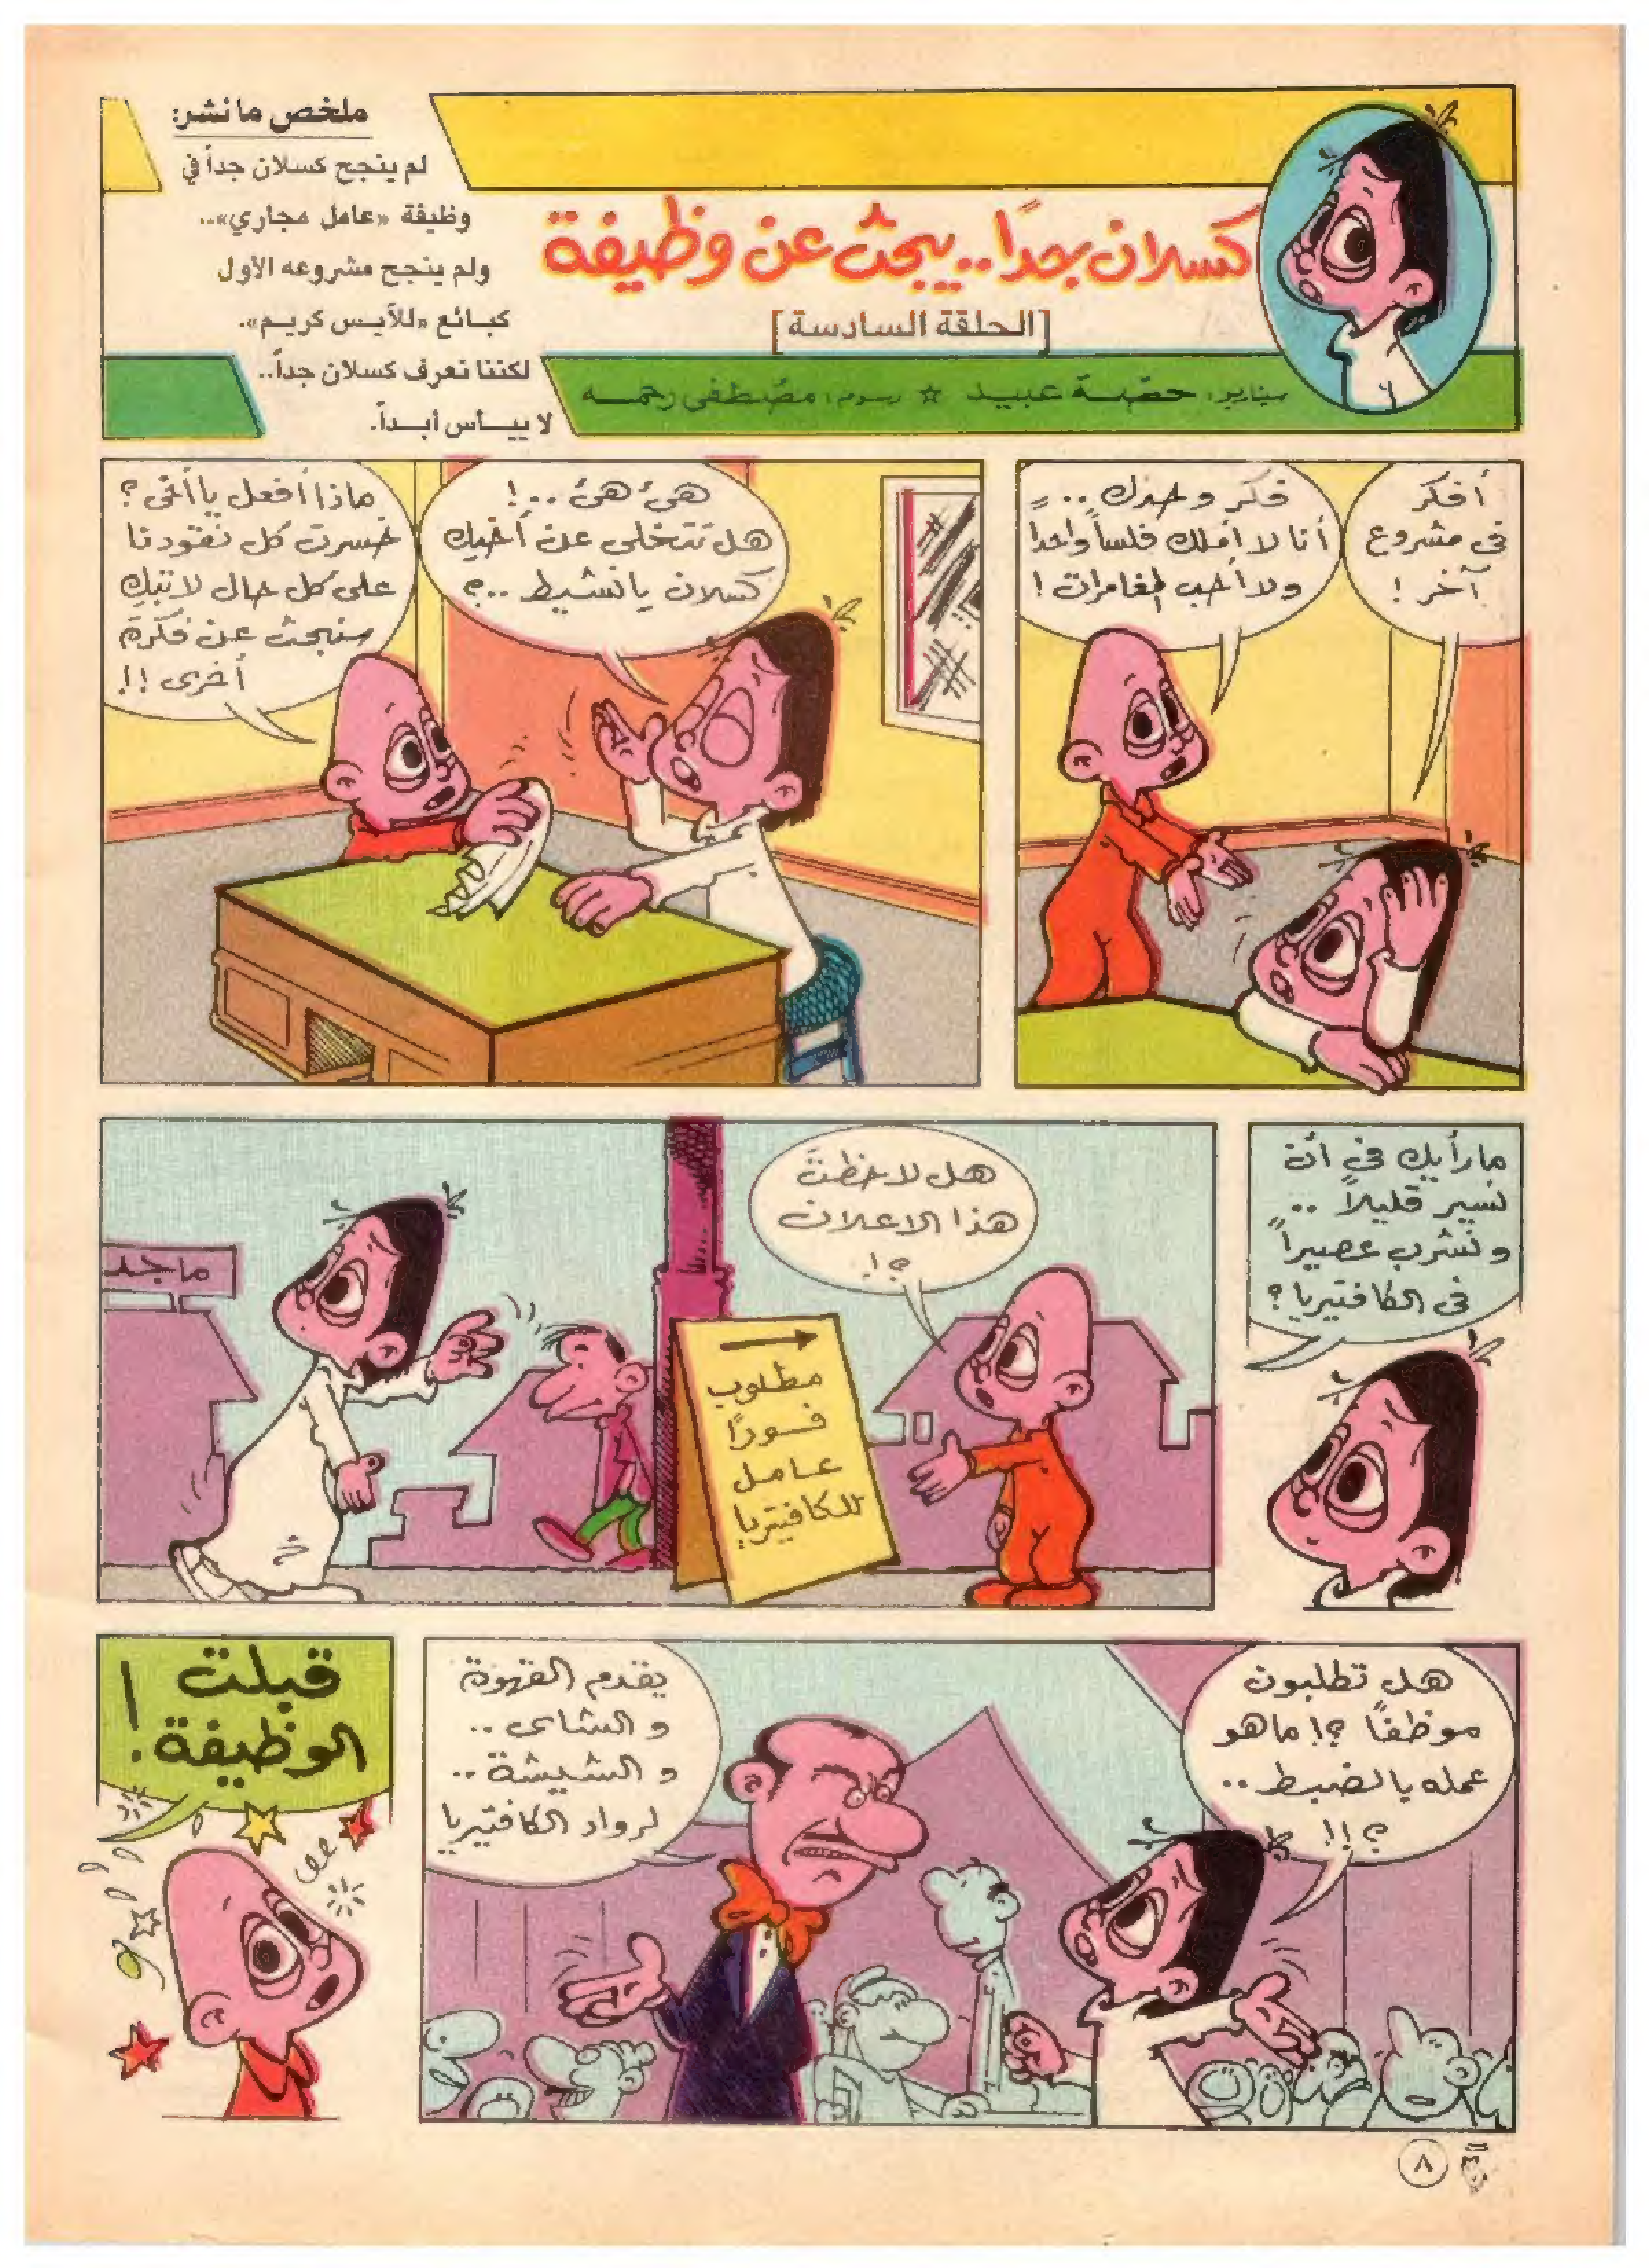 كسلان جدًا.. يبحث عن وظيفة
[الحلقة السادسة]
سيناريو: حصة عبيد ☆ رسوم: مصطفى رحمه
ملخص ما نشر:
لم ينجح كسلان جداً في
وظيفة «عامل مجاري»..
ولم ينجح مشروعه الأول
كبائع «للآيس كريم».
لكننا نعرف كسلان جداً..
لا ييــأس أبــداً.
أفكر
في مشروع
آخر !
فكر وحدك ..
أنا لا أملك فلساً واحداً
ولا أحب المغامرات !
هئ هئ ..!
هل تتخلى عن أخيك
كسلان يا نشيط ..؟
ماذا أفعل يا أخى ؟
خسرت كل نقودنا
على كل حال لا تبكِ
سنبحث عن فكرة
أخرى !!
ما رأيك في أن
نسير قليلاً ..
ونشرب عصيراً
في الكافتيريا ؟
هل لاحظت
هذا الاعلان
؟!
مطلوب
فورًا
عامل
للكافتيريا
ماجد
هل تطلبون
موظفًا ؟! ما هو
عمله بالضبط ..
؟ !!
يقدم القهوة
و الشاى ..
و الشيشة ..
لرواد الكافتيريا
قبلت
الوظيفة !
٨